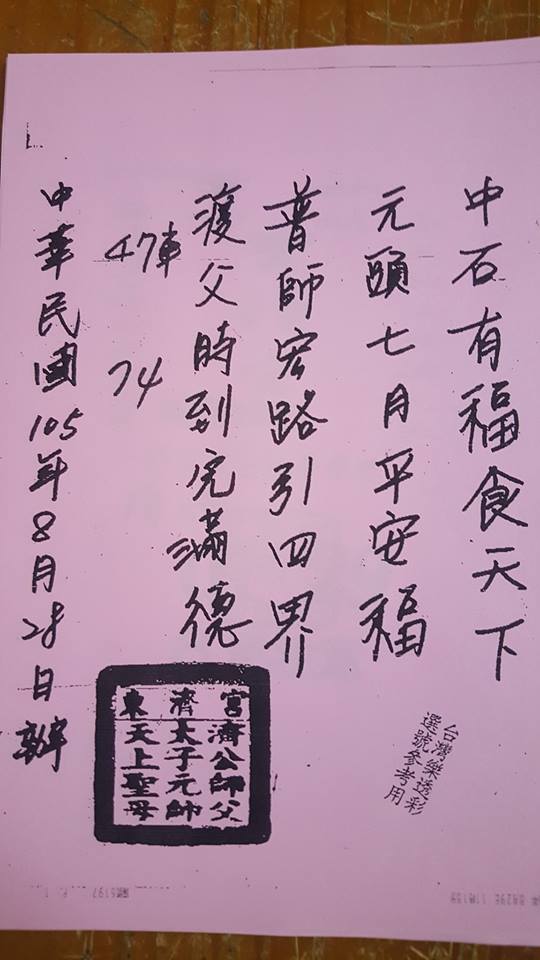 中石有福食天下
元頭七月平安福
普師宏路引四界
渡父時到完滿德
47車 74
中華民國105年8月28日辦
宮濟東
濟公師父
太子元帥
天上聖母
台灣樂透彩
選號參考用